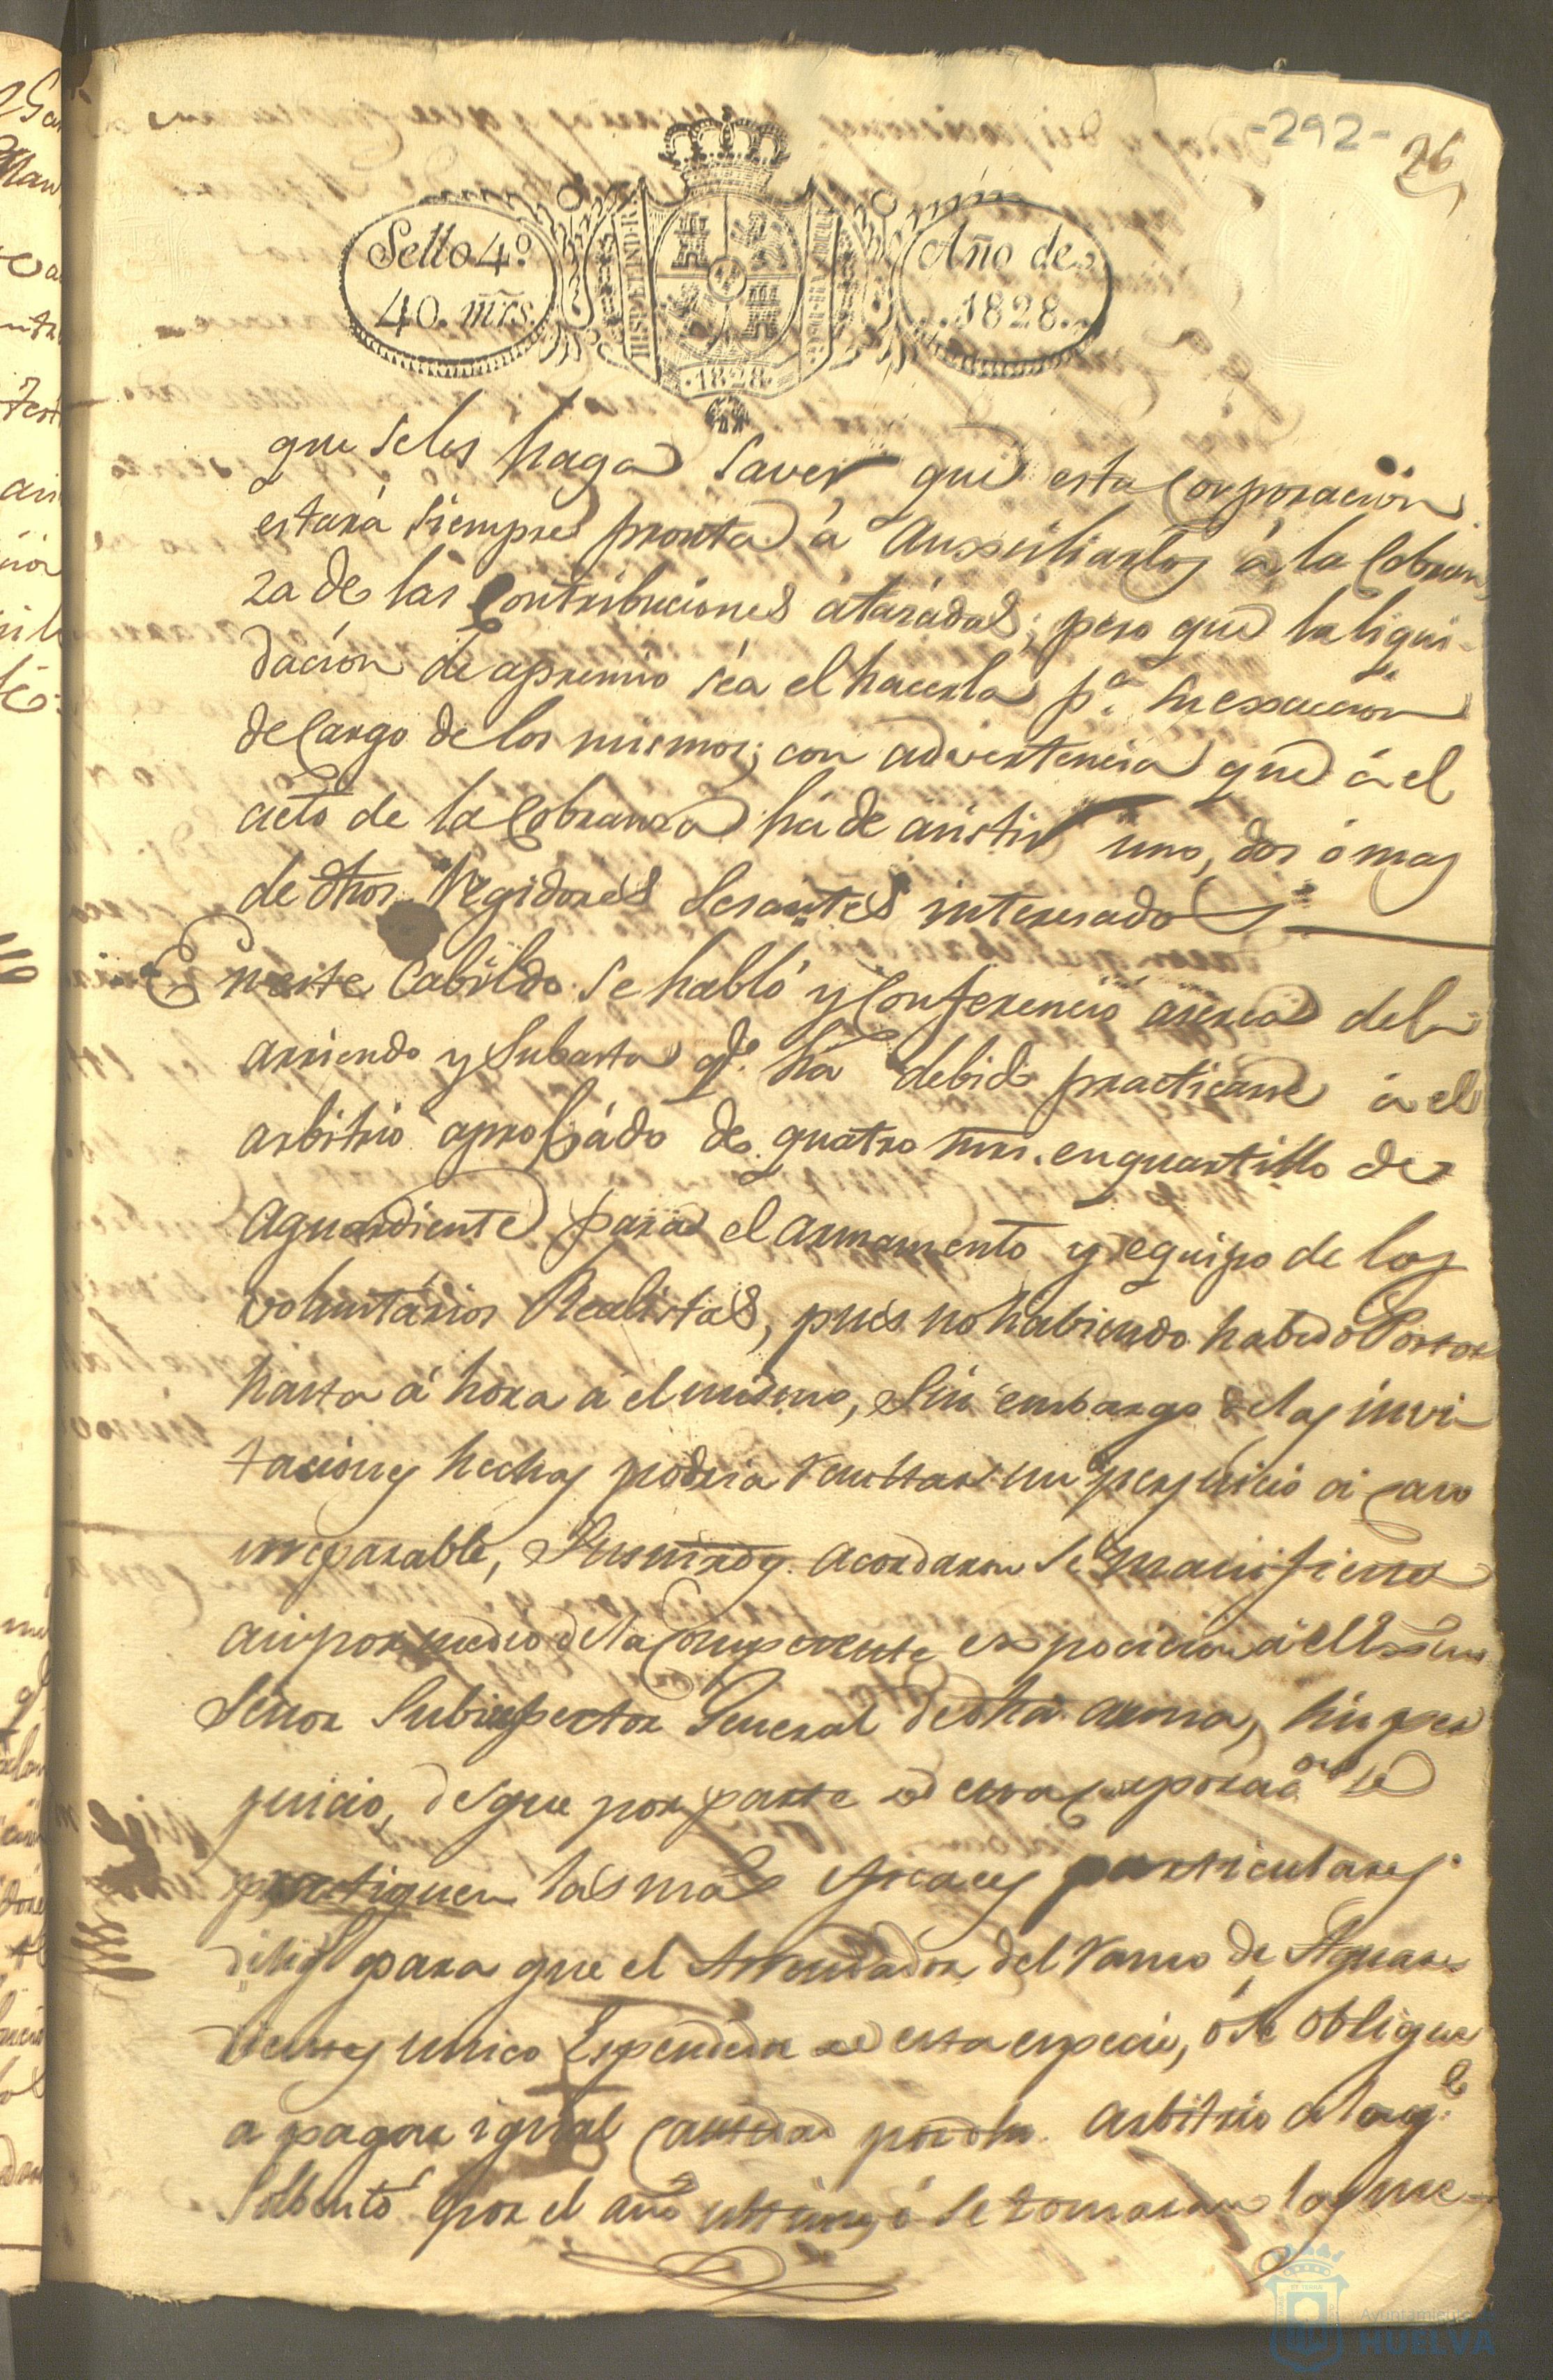 -292-
26
Sello 4º
40. mrs.
Año de
1828.
HISP. ET IND. R.
·1828·
que seles haga saver que esta Corporacion
estará siempre pronta á Auxsiliarlos á la Cobran
za de las Contribuciones átasádas; pero que la liqui-
dación de apremio séa el hacerla pª. su exsaccion
de Cargo de los mismos; con advertencia que á el
acto de la Cobranza há de asistir uno, dos ó mas
de dhos. Regidores Serantes interesados
En este Cabildo se habló y Conferenció aserca del
arriendo y Subasta qe. há debido practicarse á el
arbitrio aprobádo de quatro mrs. en quartillo de
Aguardiente para el armamento y equipo de los
voluntários Realistas, pues no habiendo habido Postor
hasta á hora á el mismo, sin embargo de las invi-
taciones hechas podria resultar un perjuicio á caso
irreparable, Sus mrds. acordaron se manifieste
asi por medio de la Competente exposicion á el Exsmo
Señor Subinspector General de dha. arma, sin per
juicio, de que por parte de esta Corporacon. se
practiquen las mas eficaces particulares
dilig.s para que el Arrendador del Ramo de Aguar-
dientes unico Espendedor de esta especie, ó se obligue
a pagar igual Cantidad por dho. arbitrio a la qe.
Solbentó por el año ultimo, ó se tomaran las me-
Ayuntamiento de
HUELVA